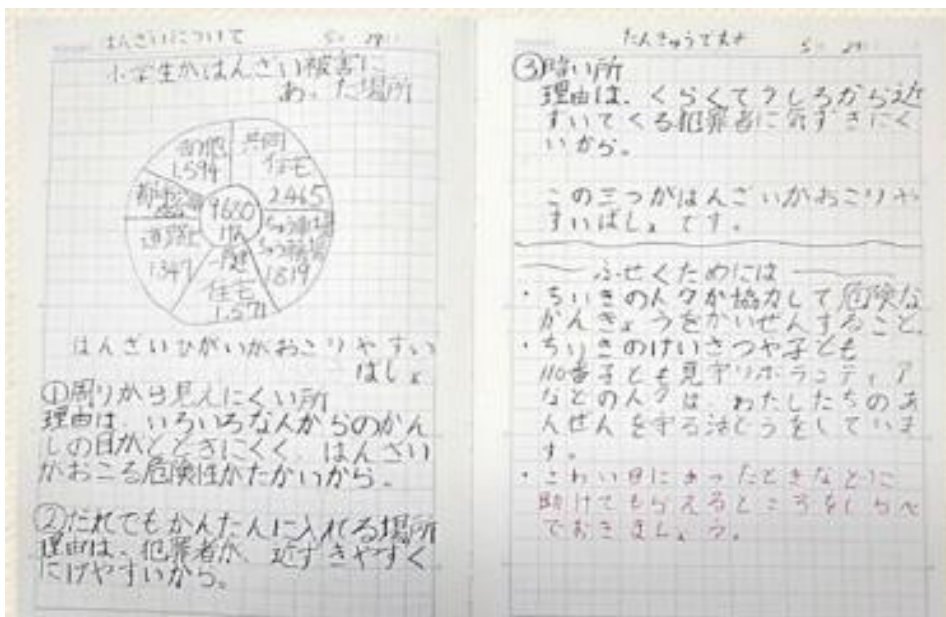 はんざいについて
小学生がはんざい被害に
あった場所
その他
1.594
共同
住宅
2.465
ちゅう車場
ちゅう輪場
1.819
9630
件
道路上
1.347
一戸建
住宅
1.571
はんざいひがいがおこりやすい
ばしょ
①周りから見えにくい所
理由は、いろいろな人からのかん
しの目がとどきにくく、はんざい
がおこる危険性がたかいから。
②だれでもかんたんに入れる場所
理由は、犯罪者が、近ずきやすく
にげやすいから。
③暗い所
理由は、くらくてうしろから近
ずいてくる犯罪者に気ずきにく
いから。
この三つがはんざいがおこりや
すいばしょです。
ふせぐためには
・ちいきの人々が協力して危険な
かんきょうをかいぜんすること。
・ちいきのけいさつや子ども
110番子ども見守りボランティア
などの人々は、わたしたちのあ
んぜんを守る活どうをしていま
す。
・こわい目にあったときなどに
助けてもらえるところをしらべ
ておきましょう。